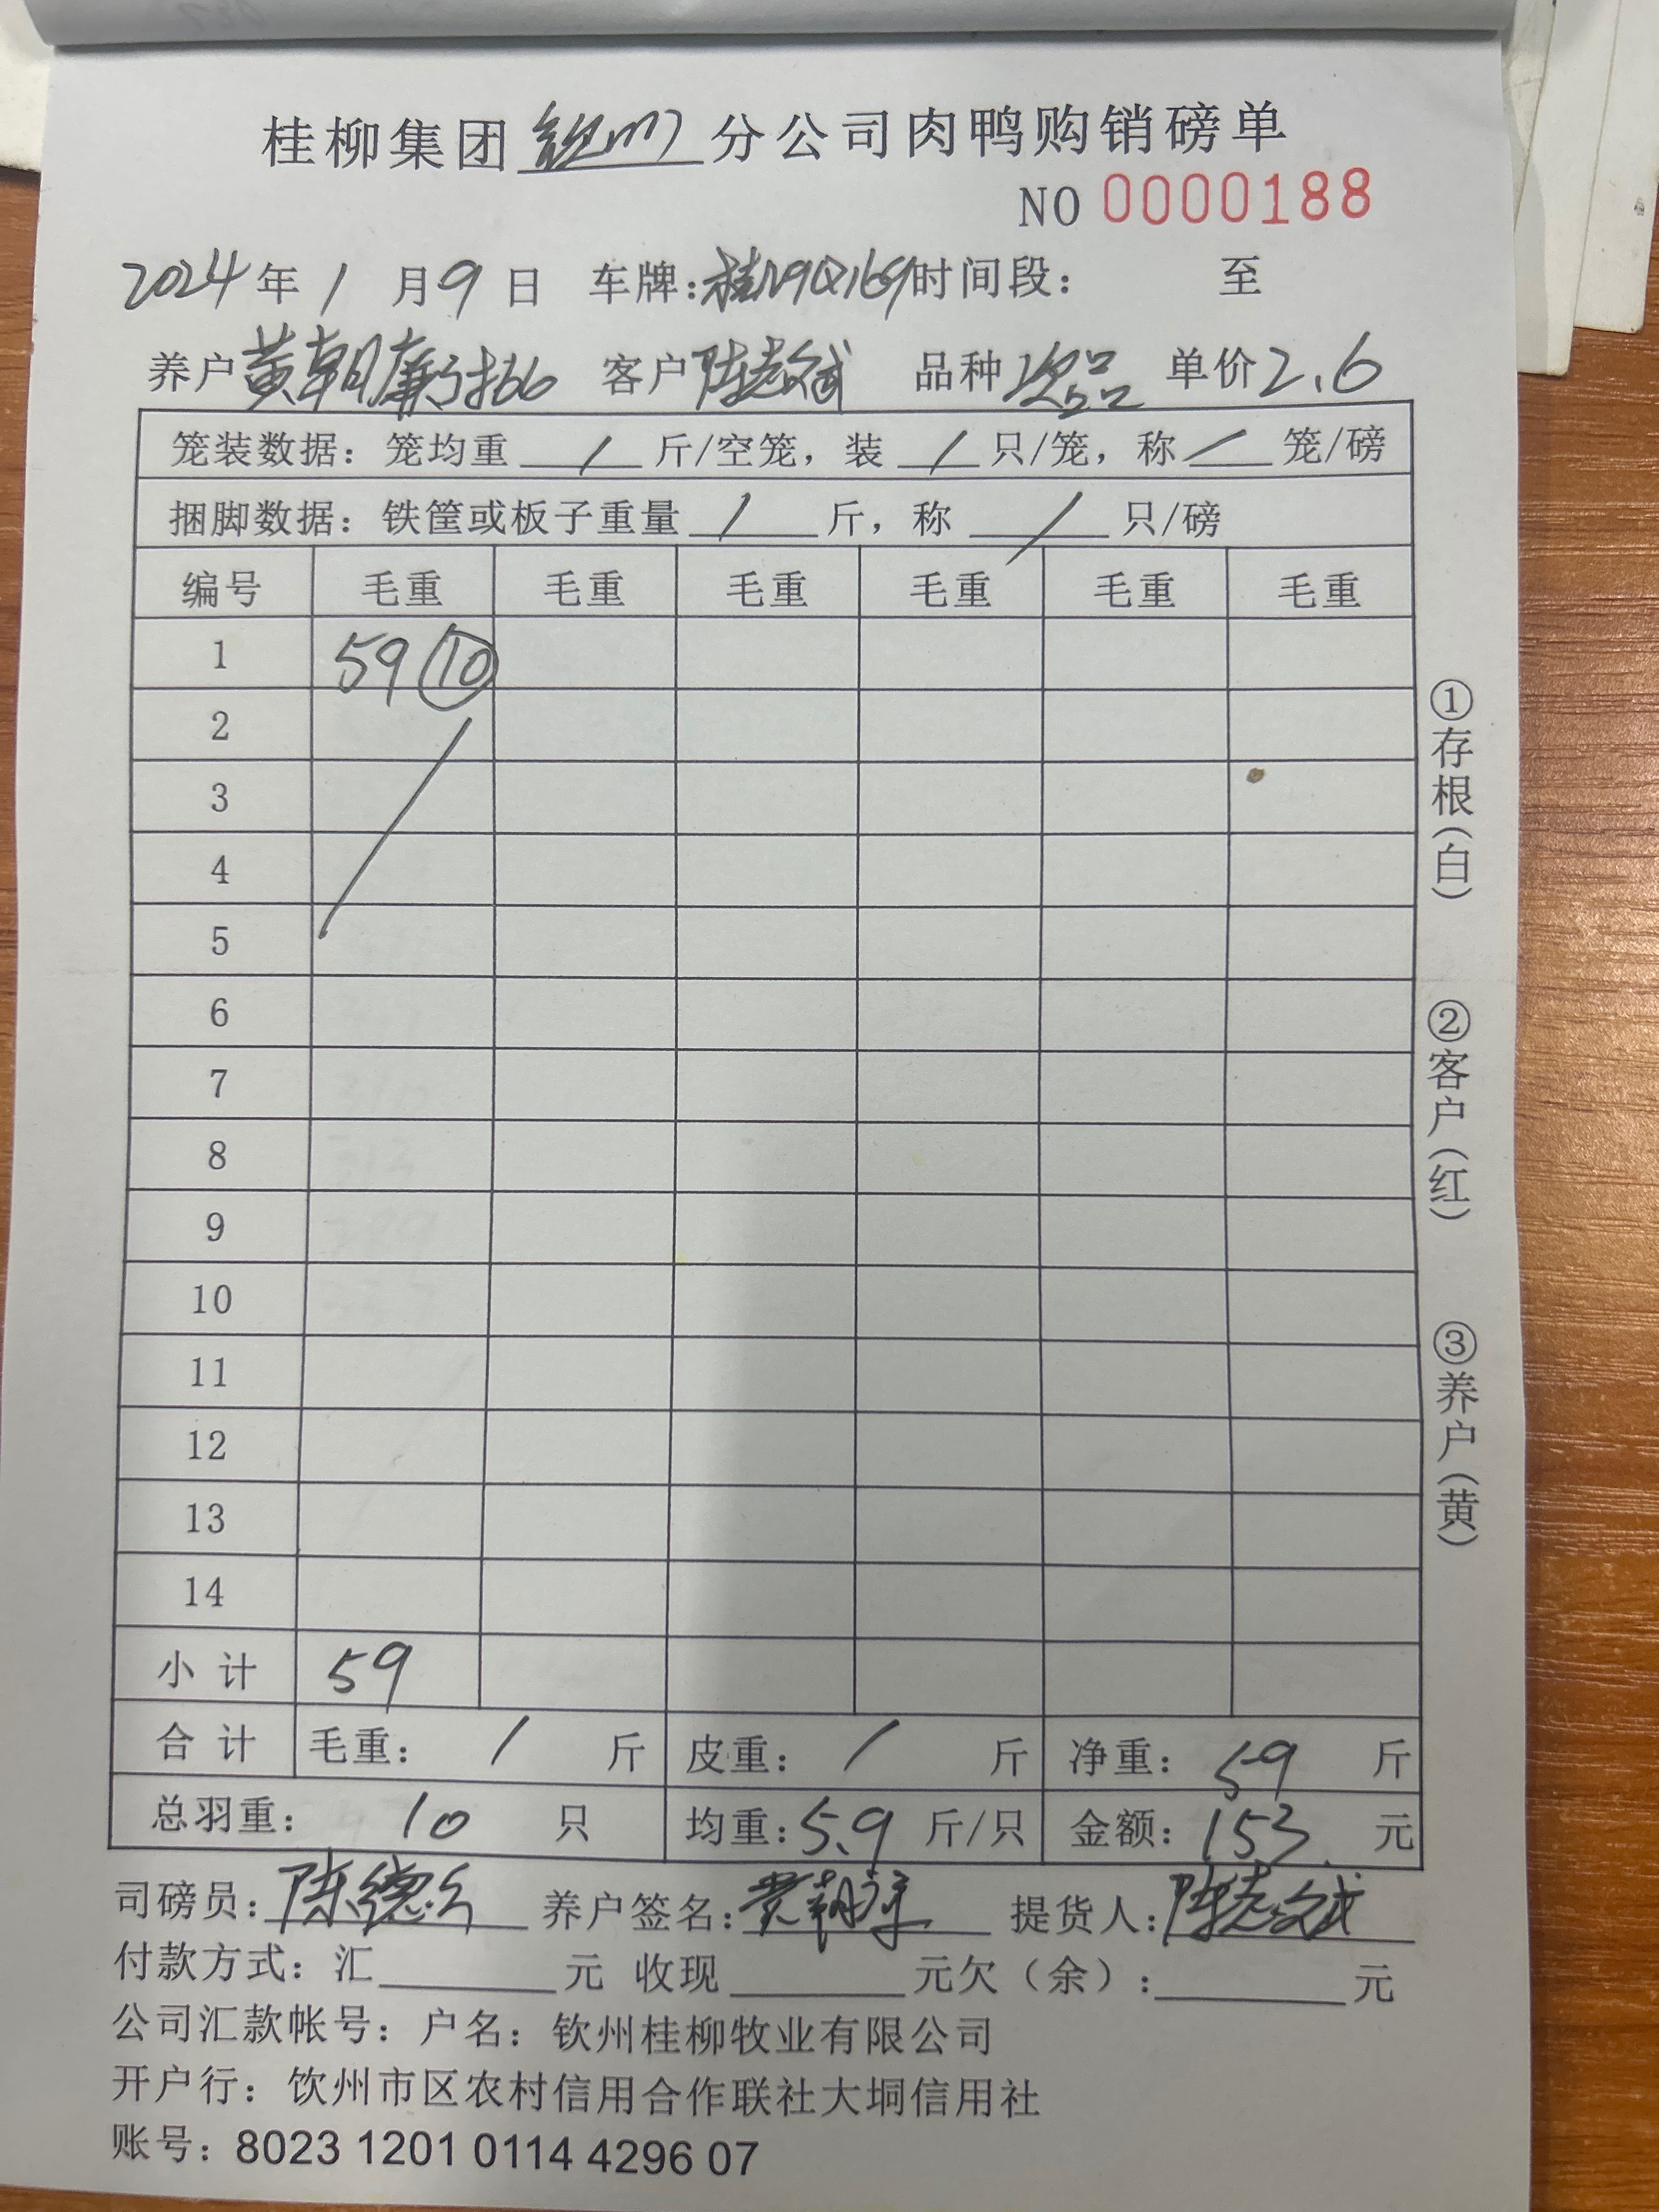 桂柳集团钦州分公司肉鸭购销磅单
NO 0000188
2024年1月9日 车牌:桂 时间段: 至
养户黄朝廉 客户陈志斌 品种次品 单价2.6
笼装数据:笼均重 / 斤/空笼,装 / 只/笼,称 / 笼/磅
捆脚数据:铁筐或板子重量 / 斤,称 / 只/磅
编号 毛重 毛重 毛重 毛重 毛重 毛重
1 59 ⑩
2
3
4
5
6
7
8
9
10
11
12
13
14
小计 59
合计 毛重: / 斤 皮重: / 斤 净重: 59 斤
总羽重: 10 只 均重:5.9 斤/只 金额:153 元
司磅员:陈德 养户签名:黄朝 提货人:陈志斌
付款方式:汇 元 收现 元欠(余): 元
公司汇款帐号:户名:钦州桂柳牧业有限公司
开户行:钦州市区农村信用合作联社大垌信用社
账号:8023 1201 0114 4296 07
①存根(白)
②客户(红)
③养户(黄)